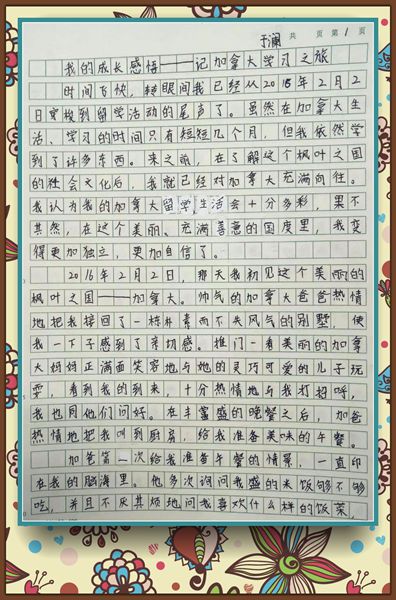 于澜 共 页 第 1 页
我的成长感悟——记加拿大学习之旅
时间飞快，转眼间我已经从2016年2月2
日穿梭到留学活动的尾声了。虽然在加拿大生
活、学习的时间只有短短几个月，但我依然学
到了许多东西。来之前，在了解这个枫叶之国
的社会文化后，我就已经对加拿大充满向往。
我认为我的加拿大留学生活会十分多彩，果不
其然，在这个美丽、充满善意的国度里，我变
得更加独立，更加自信了。
2016年2月2日，那天我初见这个美丽的
枫叶之国——加拿大。帅气的加拿大爸爸热情
地把我接回了一栋朴素而不失风气的别墅，使
我一下子感到了亲切感。推门一看美丽的加拿
大妈妈正满面笑容地与她的灵巧可爱的儿子玩
耍，看到我的到来，十分热情地与我打招呼，
我也同他们问好。在丰富盛的晚餐之后，加爸
热情地把我叫到厨房，给我准备美味的午餐。
加爸第一次给我准备午餐的情景，一直印
在我的脑海里。他多次询问我盛的米饭够不够
吃，并且不厌其烦地问我喜欢什么样的饭菜